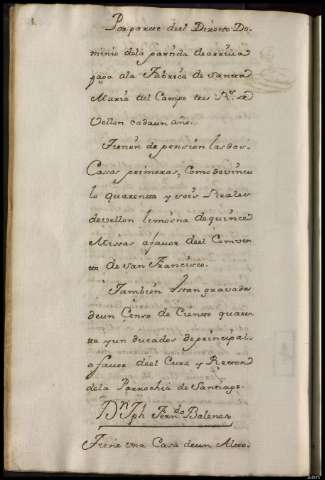 Por parte del Directo Do-
minio dela partida de arriva
paga ala Fabrica de Santa
Maria del Campo tres Rs. de
Vellon cadaun año.
Tienen de pension las dos
Casas primeras, como devincu
lo quarenta y seis Reales
devellon limosna de quince
Missas afavor del Conven
to de San Francisco.
Tambien estan gravadas
deun Censo de Ciento quaren
ta y un ducados de principal
afavor del Cura y Rector
dela Parrochia de Santiago.
Dn. Jph Ferndo Balenas
Tiene una Casa deun Alto.